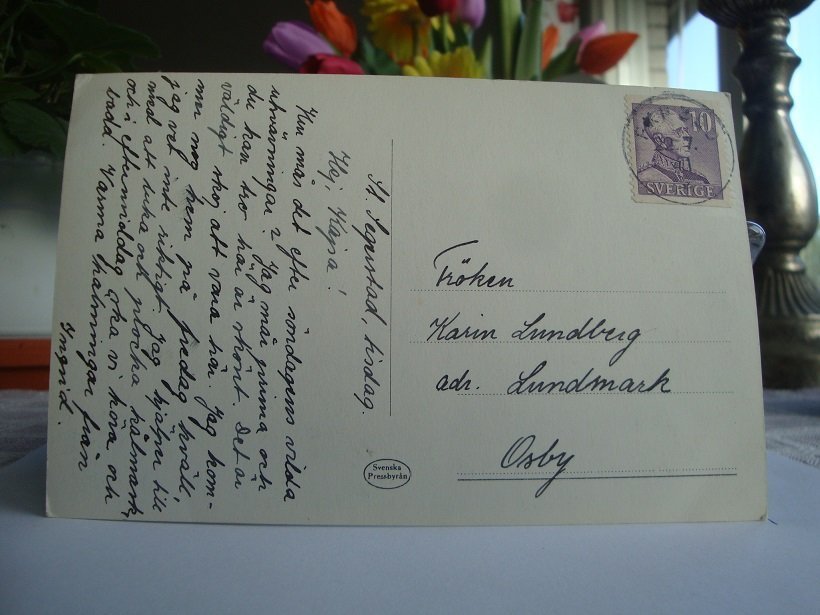 St. Segerstad, tisdag.
Hej, Kajsa!
Hur mås det efter söndagens vilda
utsvävningar? Jag mår prima och
du kan tro här är skönt. Det är
väldigt skoj att vara här. Jag kom-
mer nog hem på fredag kväll,
jag vet inte riktigt. Jag hjälper till
med att luka och plocka kålmask,
och i eftermiddag ska vi köra och
bada. Varma hälsningar från
Ingrid.
10
SVERIGE
Fröken
Karin Lundberg
adr. Lundmark
Osby
Svenska
Pressbyrån